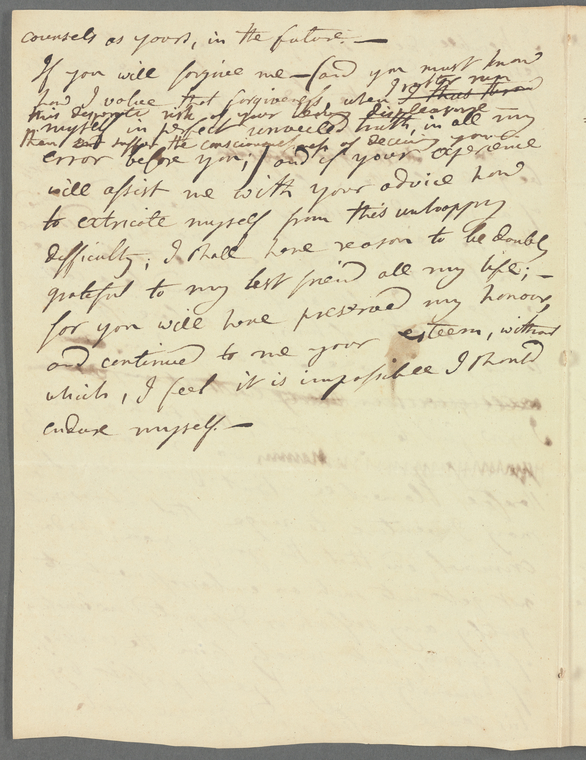 counsels as yours, in the future.—
If you will forgive me—(and you must know
how I value that forgiveness when I rather run
this desperate risk of your lasting displeasure
I thus throw
myself in perfect unveiled truth, in all my
than suffer the consciousness of deceiving you
error before you;) and if your experience
will assist me with your advice how
to extricate myself from this unhappy
difficulty; I shall have reason to be doubly
grateful to my best friend all my life;—
for you will have preserved my honour,
and continued to me your esteem, without
which, I feel it is impossible I should
endure myself.—